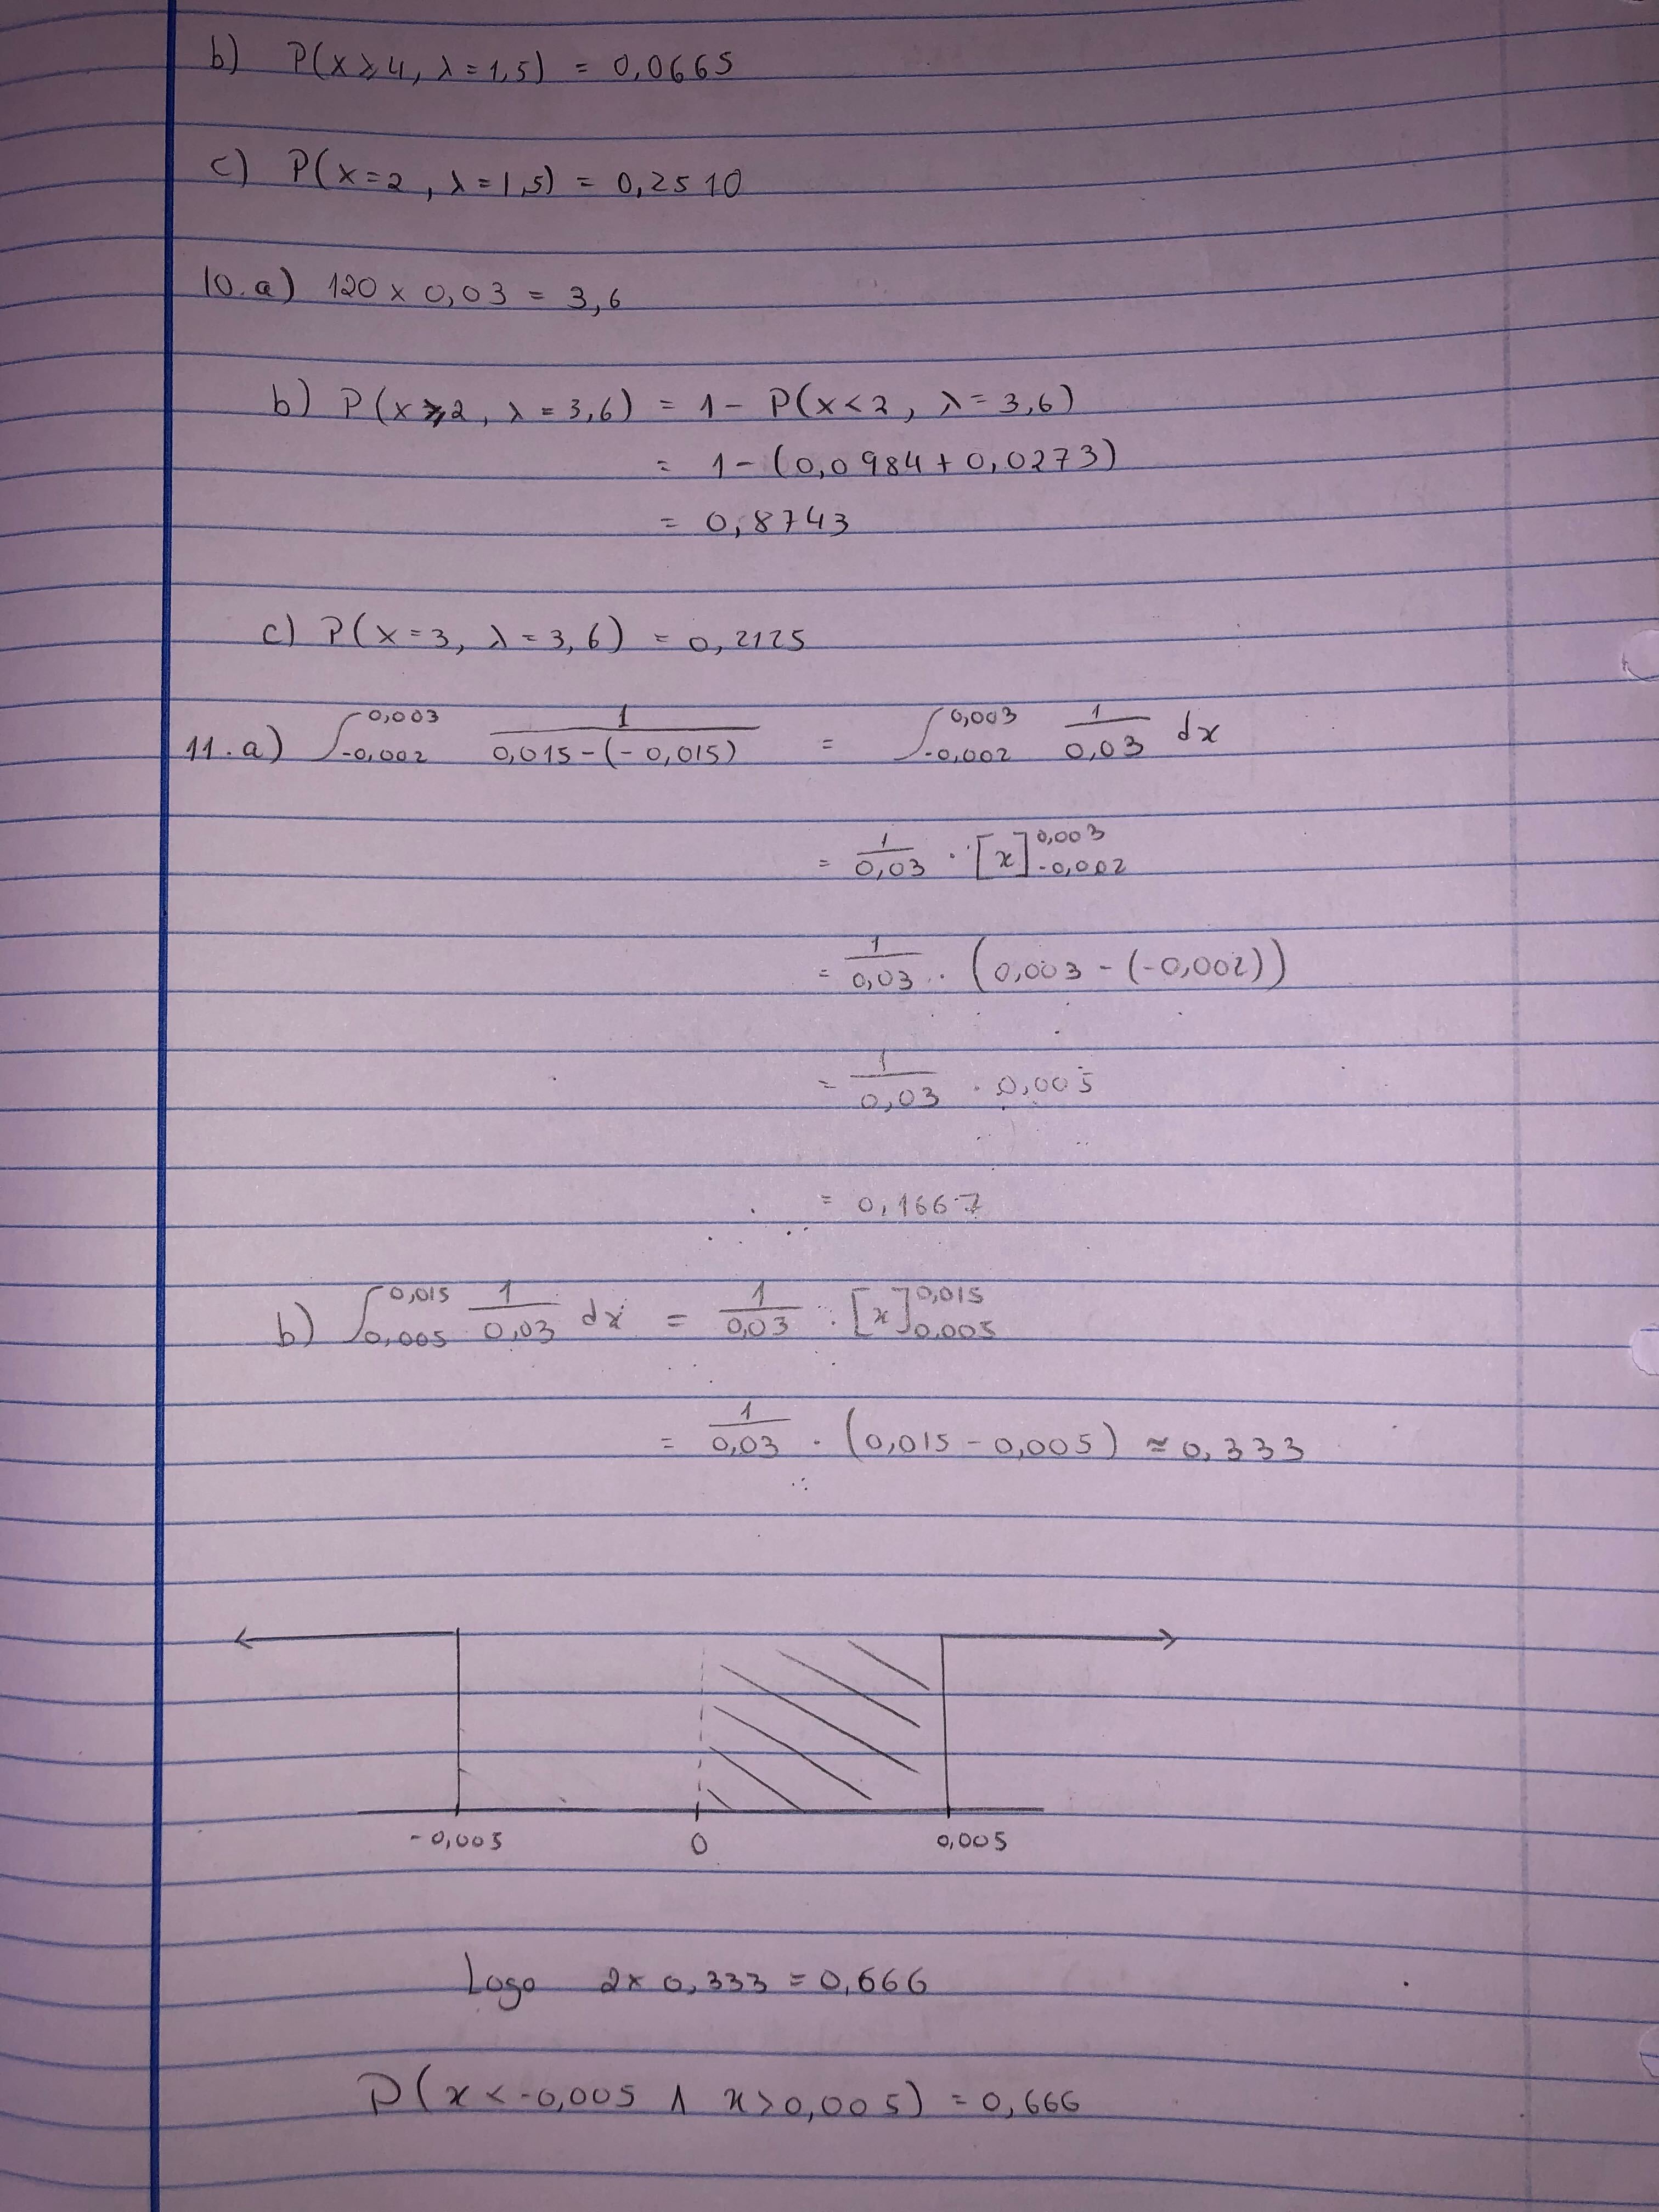 b) P(x ⩾ 4, λ = 1,5) = 0,0665
c) P(x = 2, λ = 1,5) = 0,2510
10. a) 120 × 0,03 = 3,6
b) P(x ⩾ 2, λ = 3,6) = 1 - P(x < 2, λ = 3,6)
= 1 - (0,0984 + 0,0273)
= 0,8743
c) P(x = 3, λ = 3,6) = 0,2125
11. a) ∫_{-0,002}^{0,003} 1/(0,015 - (-0,015)) = ∫_{-0,002}^{0,003} 1/0,03 dx
= 1/0,03 · [x]_{-0,002}^{0,003}
= 1/0,03 · (0,003 - (-0,002))
= 1/0,03 · 0,005
= 0,1667
b) ∫_{0,005}^{0,015} 1/0,03 dx = 1/0,03 · [x]_{0,005}^{0,015}
= 1/0,03 · (0,015 - 0,005) ≈ 0,333
-0,005 0 0,005
Logo 2 × 0,333 = 0,666
P(x < -0,005 ∧ x > 0,005) = 0,666